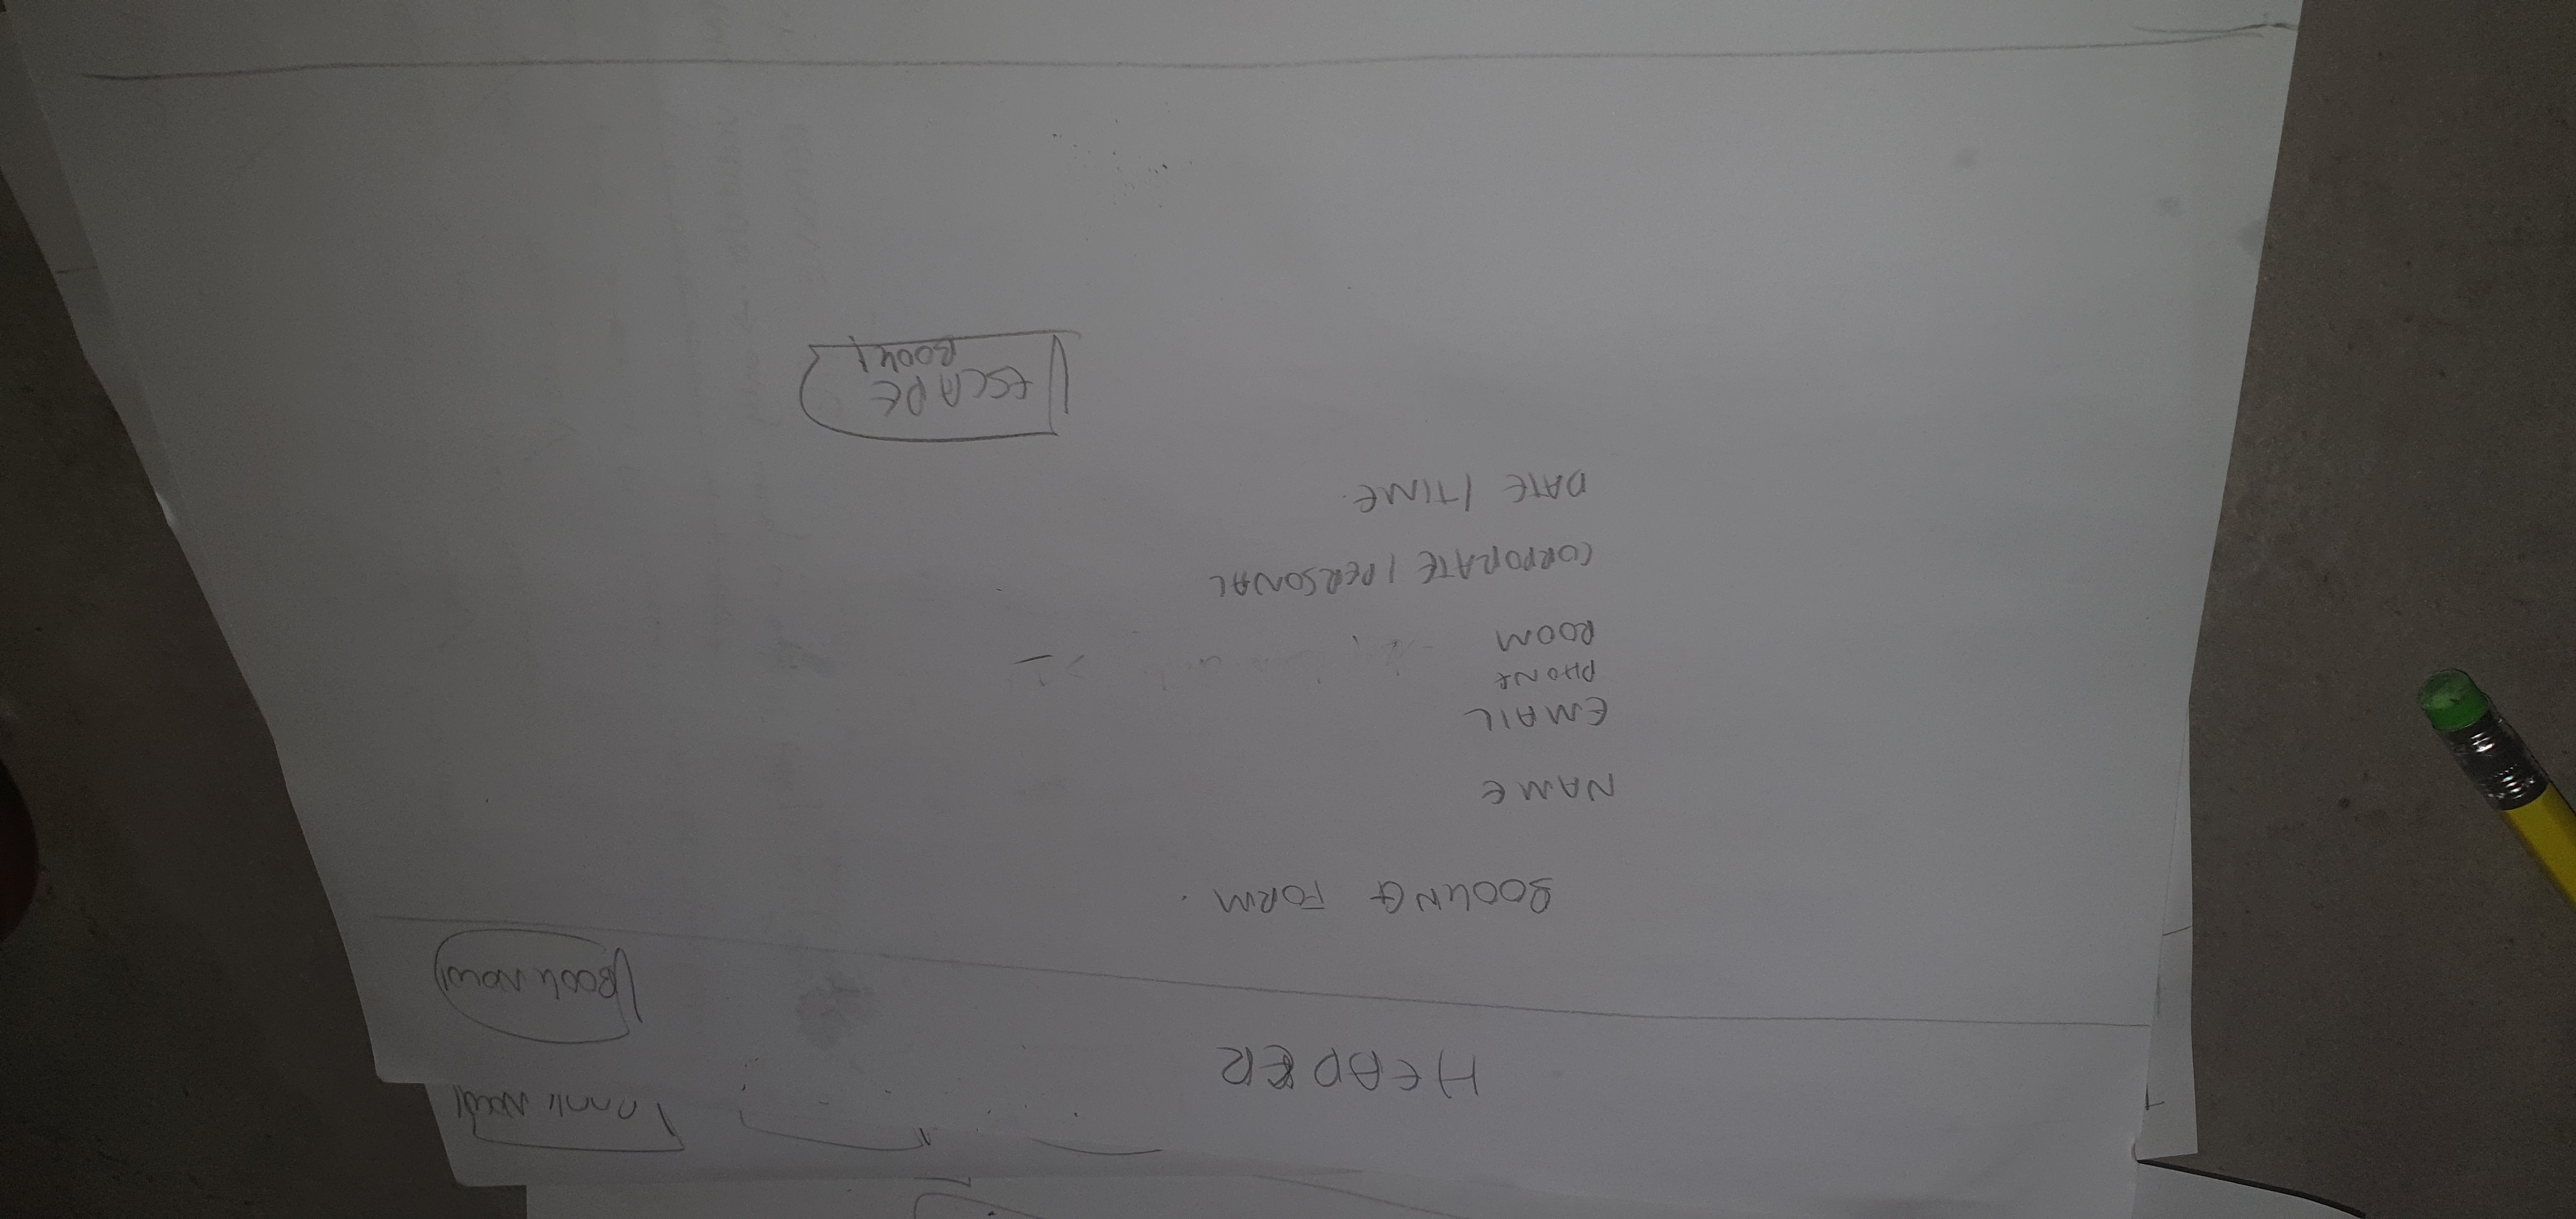 BOOK NOW!
HEADER
BOOK NOW!
BOOKING FORM.
NAME
EMAIL
PHONE
ROOM
CORPORATE / PERSONAL
DATE / TIME.
ESCAPE
BOOK!